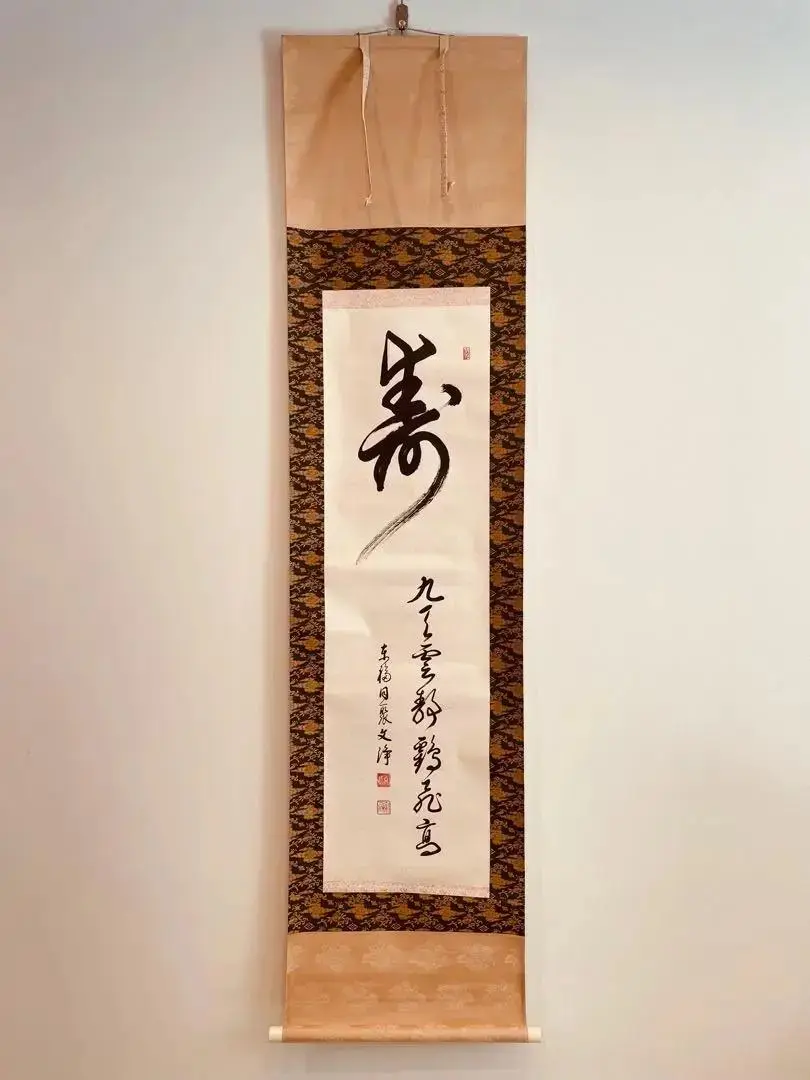 寿
九天雲静鶴飛高
東福同聚文浄